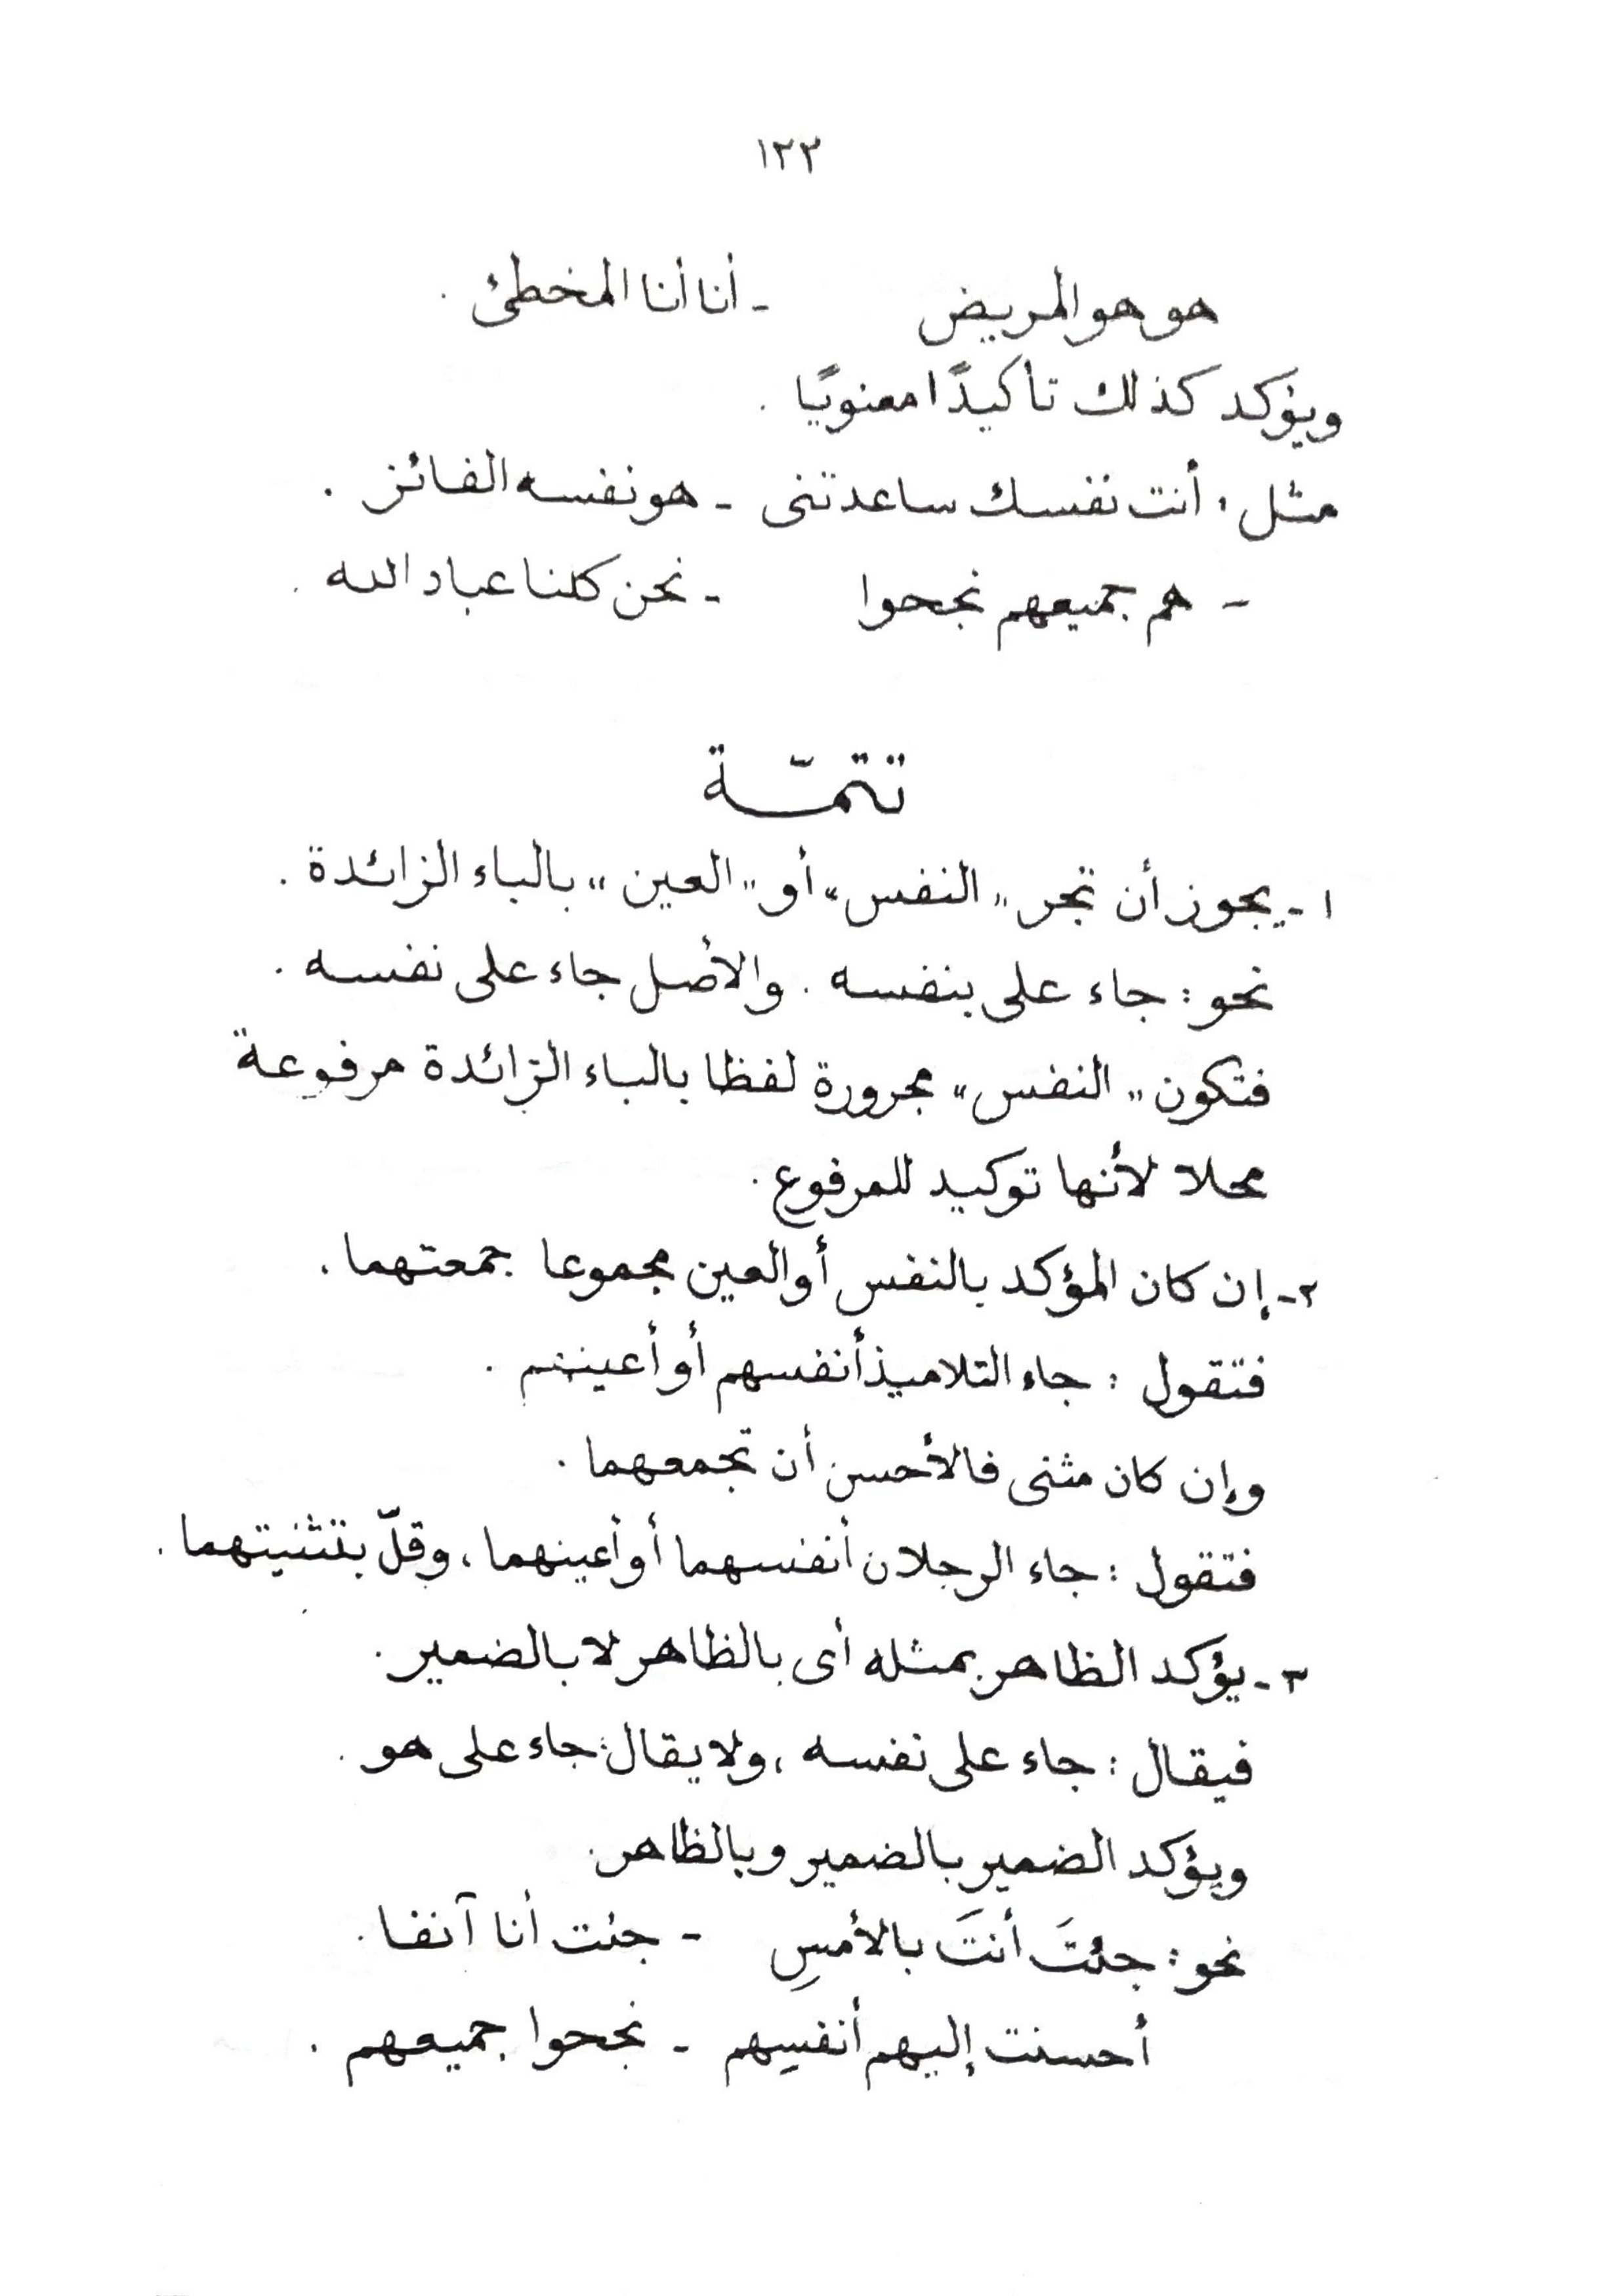 ١٢٣
هو هو المريض - أنا أنا المخطئ .
ويؤكد كذلك تأكيدًا معنويًا .
مثل : أنت نفسك ساعدتنى - هو نفسه الفائز .
- هم جميعهم نجحوا - نحن كلنا عباد الله .
تتمّة
١- يجوز أن تجر "النفس" أو "العين" بالباء الزائدة .
نحو : جاء على بنفسه . والأصل جاء على نفسه .
فتكون "النفس" مجرورة لفظا بالباء الزائدة مرفوعة
محلا لأنها توكيد للمرفوع .
٢- إن كان المؤكد بالنفس أو العين مجموعا جمعتهما .
فتقول : جاء التلاميذ أنفسهم أو أعينهم .
وإن كان مثنى فالأحسن أن تجمعهما .
فتقول : جاء الرجلان أنفسهما أو أعينهما ، وقلّ بتثنيتهما .
٣- يؤكد الظاهر بمثله أى بالظاهر لا بالضمير .
فيقال : جاء على نفسه ، ولا يقال : جاء على هو .
ويؤكد الضمير بالضمير وبالظاهر .
نحو : جئتَ أنتَ بالأمسِ - جئت أنا آنفا .
أحسنت إليهم أنفسِهم - نجحوا جميعهم .